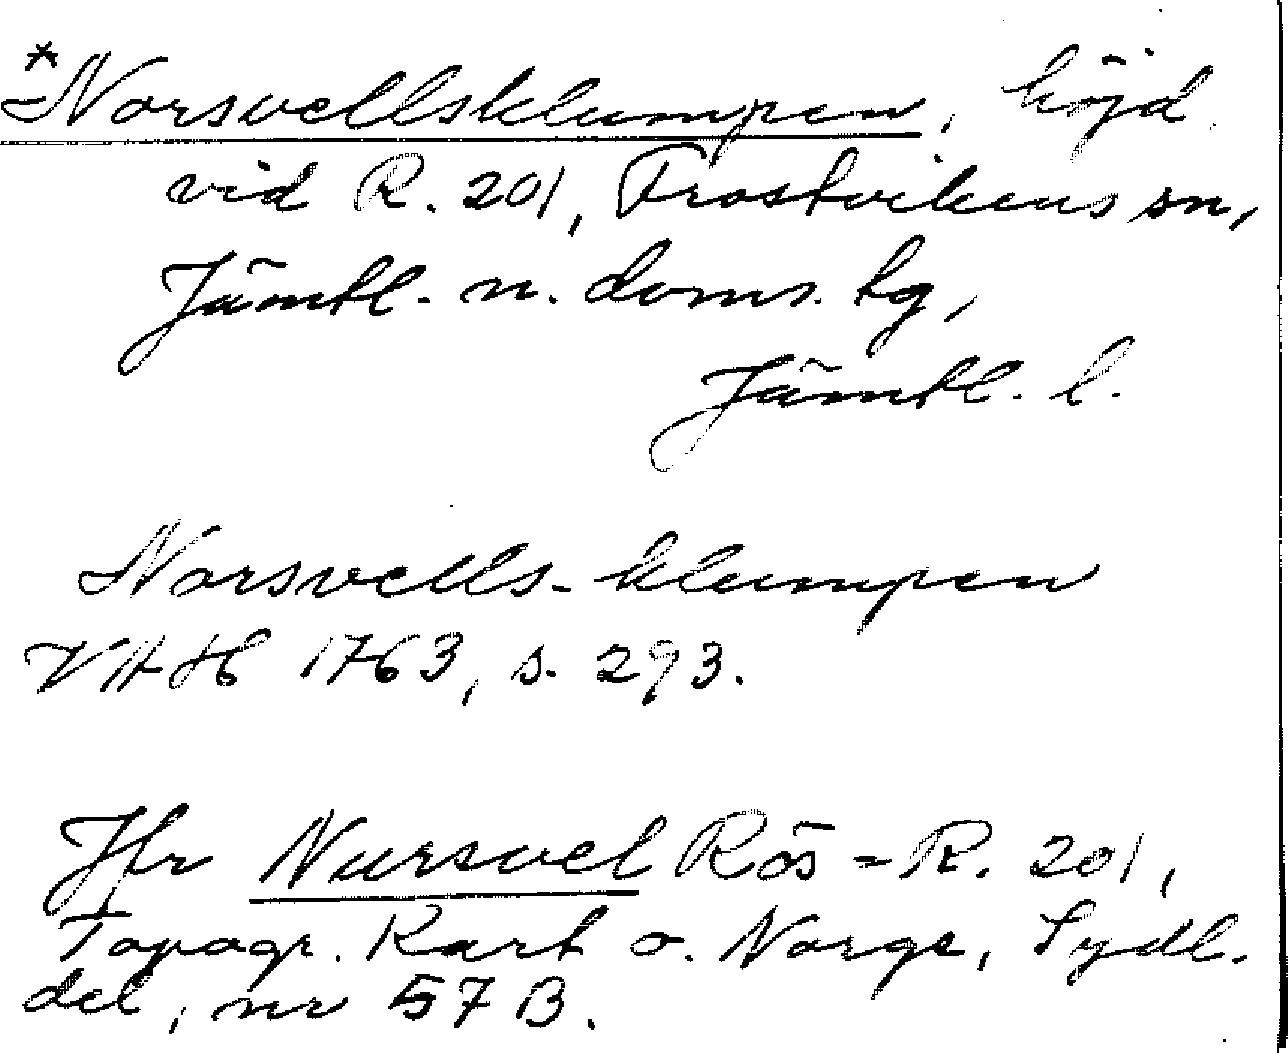 *Norsvellsklumpen, höjd
vid R. 201, Frostvikens sn,
Jämtl. n. doms. tg,
Jämtl. l.
Norsvells-klumpen
VAH 1763, s. 293.
Jfr Nursvel Rös = R. 201,
Topogr. Kart o. Norge, Sydl.
del, nr 57 B.